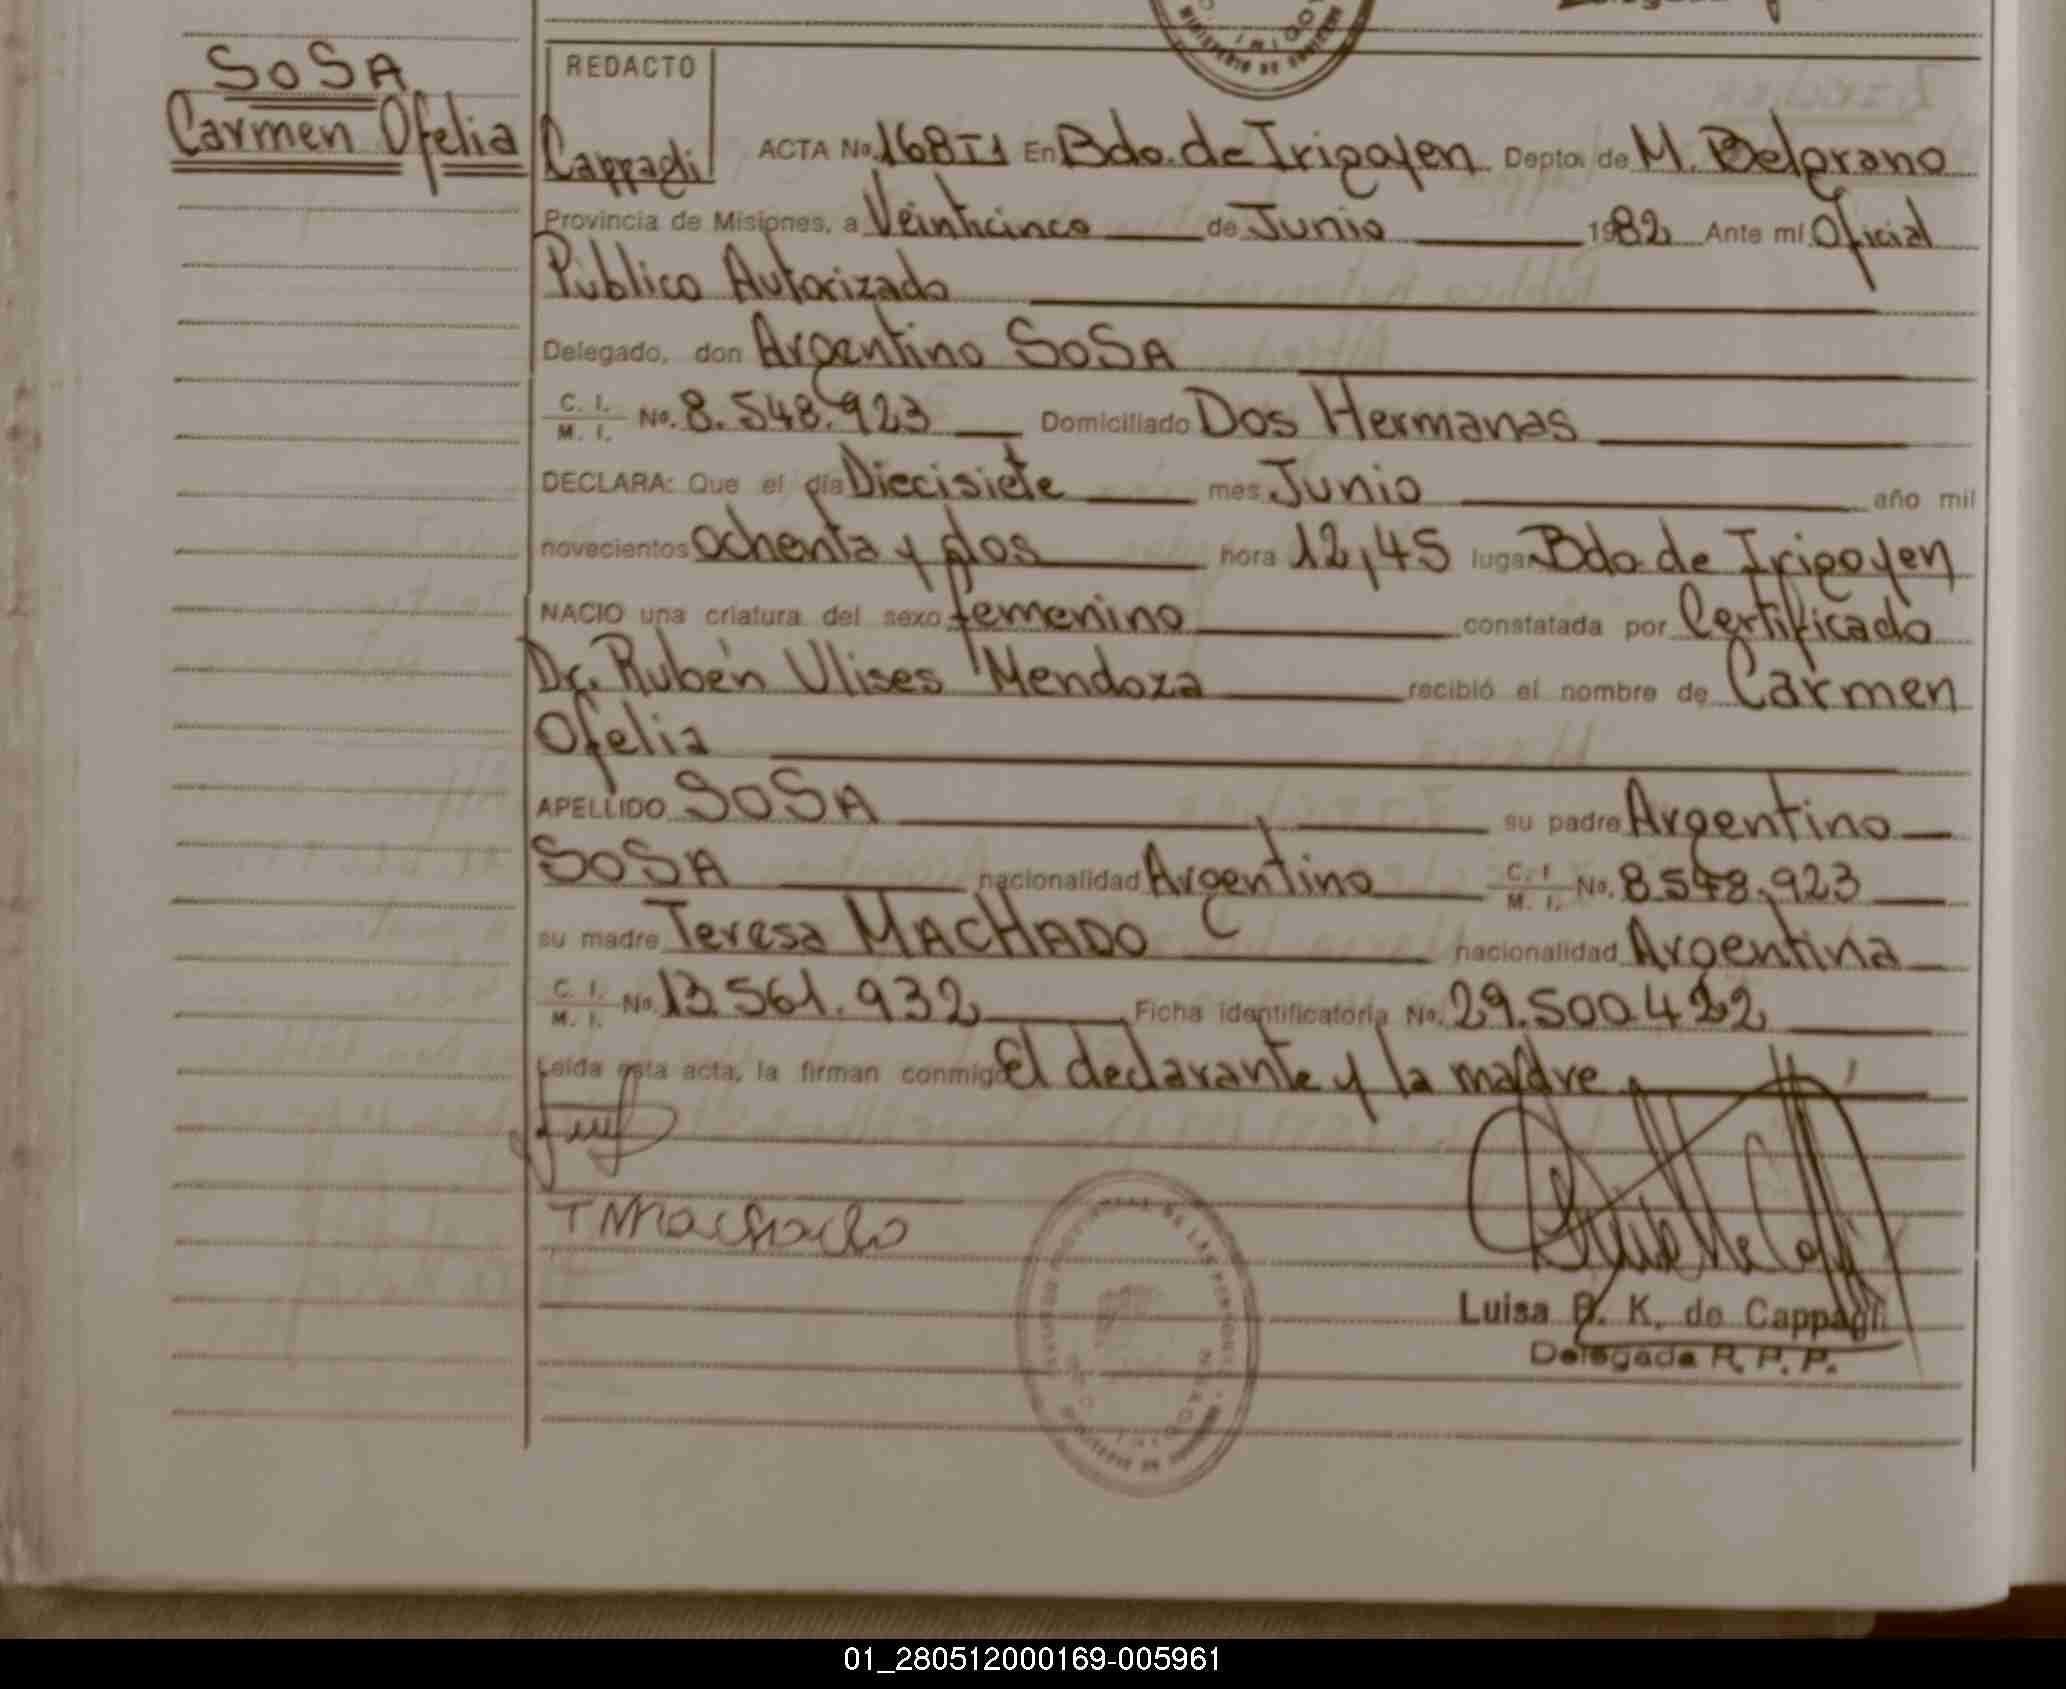 SOSA
Carmen Ofelia
REDACTO
Cappagli
ACTA No. 168T1 En Bdo. de Irigoyen Depto. de M. Belgrano
Provincia de Misiones, a Veinticinco de Junio 1982 Ante mí Oficial
Público Autorizado
Delegado, don Argentino SOSA
C. I. M. I. No. 8.548.923 Domiciliado Dos Hermanas
DECLARA: Que el día Diecisiete mes Junio año mil
novecientos ochenta y dos hora 12,45 lugar Bdo. de Irigoyen
NACIO una criatura del sexo femenino constatada por Certificado
Dr. Rubén Ulises Mendoza recibió el nombre de Carmen
Ofelia
APELLIDO SOSA su padre Argentino
SOSA nacionalidad Argentino C. I M. I. No. 8.548.923
su madre Teresa MACHADO nacionalidad Argentina
C. I. M. I. No. 13.561.932 Ficha identificatoria No. 29.500.422
Leída esta acta, la firman conmigo El declarante y la madre
T Machado
Luisa B. K. de Cappagli
Delegada R. P. P.
01_280512000169-005961